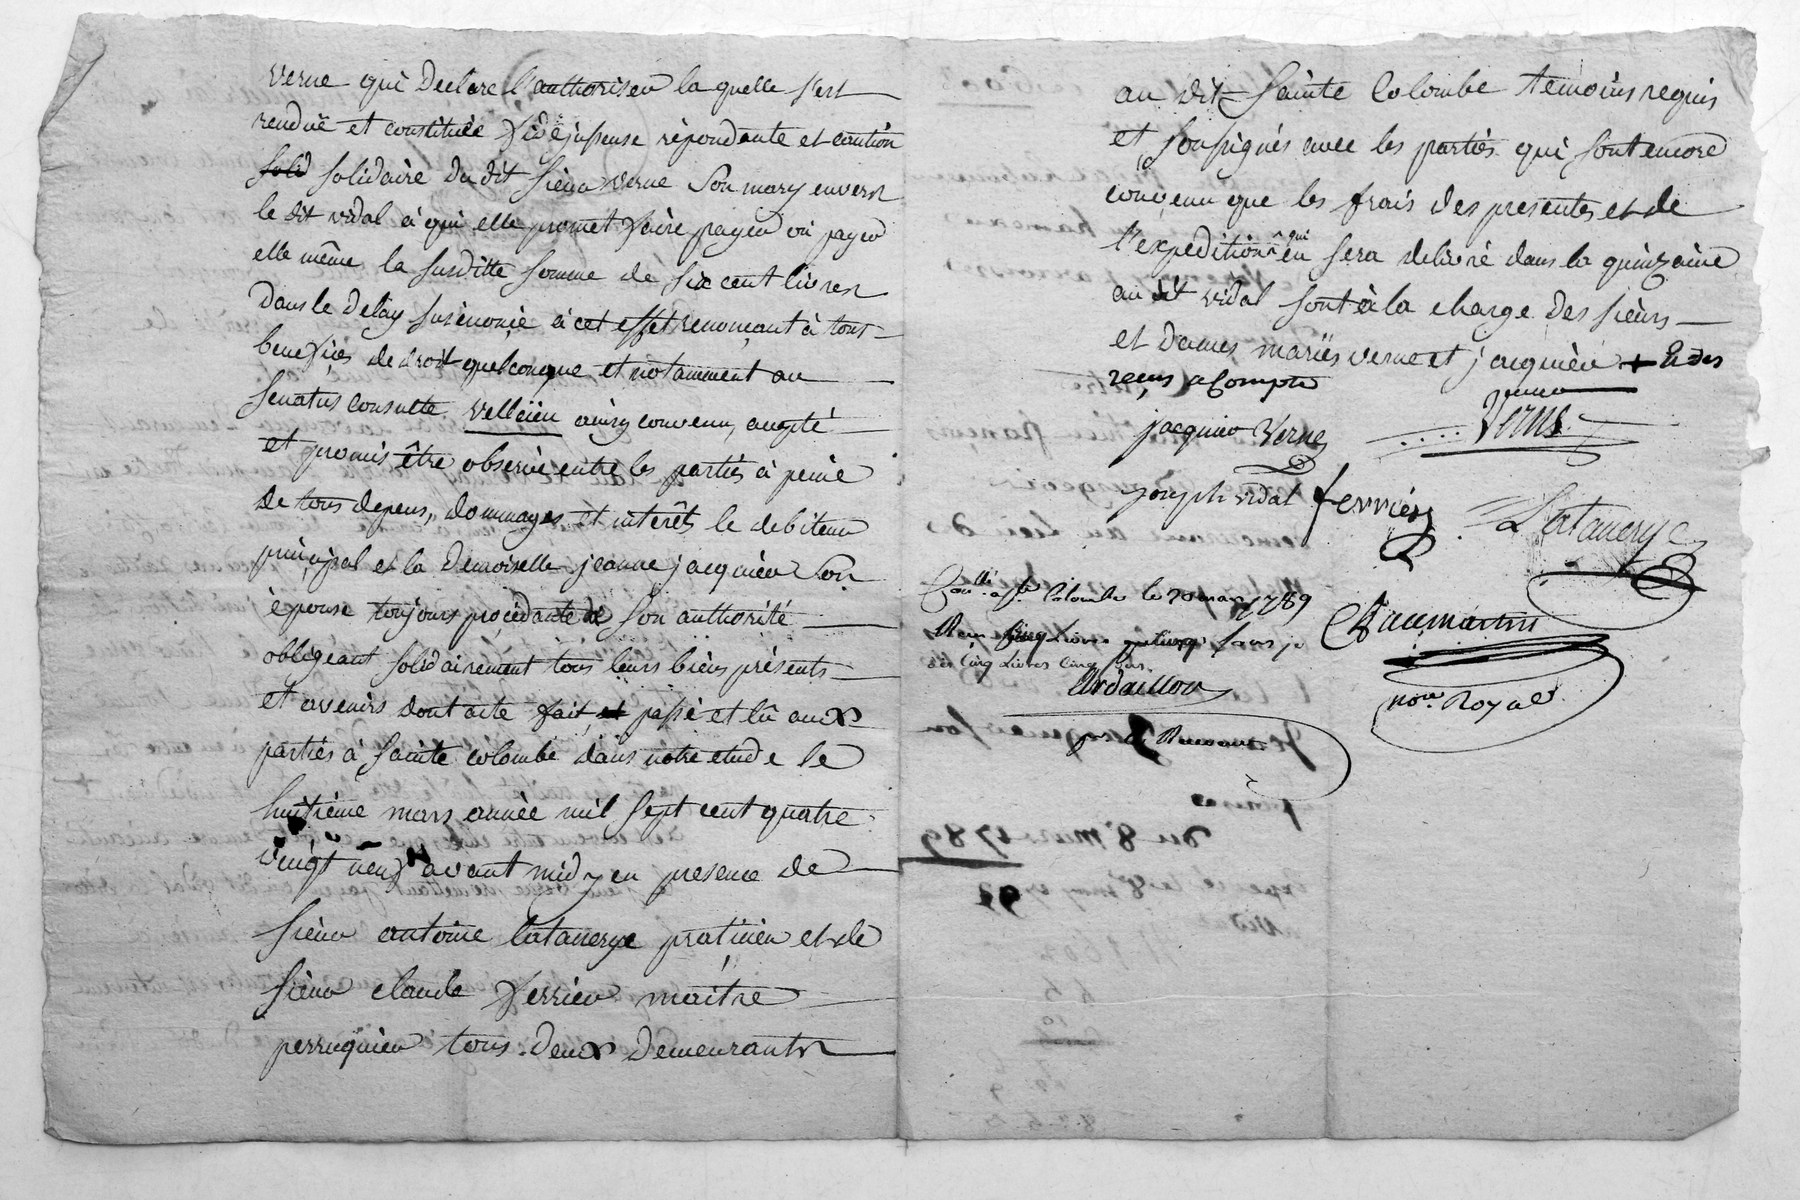 verne qui Declare l'authoriser la quelle s'est
renduë et constituée fidejusseuse répondante et caution
solid solidaire du dit sieur verne son mary envers
le dit vidal à qui elle promet faire payer ou payer
elle même la susditte somme de six cent livres
dans le delay susénoncé à cet effet renonçant à tous
benefices de droit quelconque et notamment au
senatus consulte velleïen ainsy convenu, accepté
et promis être observé entre les parties à peine
de tous depens, dommages, et interêts, le debiteur
principal et la Demoiselle jeanne jacquier son
épouse toujours procédante de son authorité
obligeant solidairement tous leurs biens présents
et avenirs dont acte fait et passé et lû aux
parties à sainte colombe dans notre etude le
huitième mars année mil sept cent quatre
vingt neuf avant midy en presence de
sieur antoine latanerye praticien et de
sieur claude ferrier maître
perruquier tous deux demeurants
au dit sainte Colombe temoins requis
et soussignés avec les parties qui sont encore
convenu que les frais des presentes et de
l'expedition qui en sera délivré dans la quinzaine
au dit vidal sont à la charge des sieurs
et dames mariés verne et jacquier + & des
reçus a compte
jacquier Verne
Verne
joseph vidal ferrier
Latanerye
Con.lé a Ste Colombe le 20 mars 1789
Reçu Cinq Livres sans
Cinq Livres Cinq sous
Ardaillon
nore Royal
du 8 mars 1789